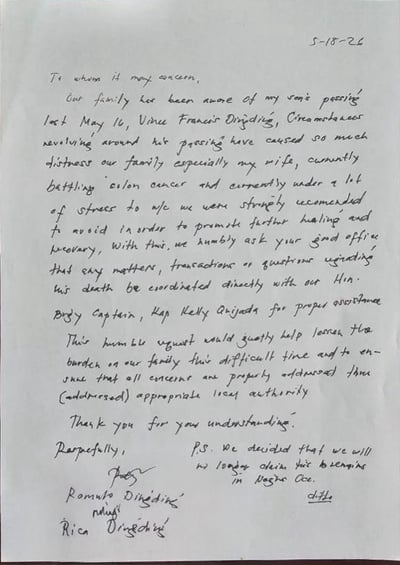 5-18-26
To whom it may concern,
Our family has been aware of my son's passing
last May 16, Vince Francis Dingding, Circumstances
revolving around his passing have caused so much
distress our family especially my wife, currently
battling colon cancer and currently under a lot
of stress to w/c we were strongly recomended
to avoid in order to promote further healing and
recovery, With this, we humbly ask your good office
that any matters, transactions or questions regarding
his death be coordinated directly with our Hon.
Brgy Captain, Kap Kelly Quijada for proper assistance
This humble request would greatly help lessen the
burden on our family this difficult time and to en-
sure that all concerns are properly addressed thru
(addressed) appropriate local authority
Thank you for your understanding.
Respefully,
P.S. We decided that we will
no longer claim his remains
in Negros Occ.
Romulo Dingding
Rica Dingding